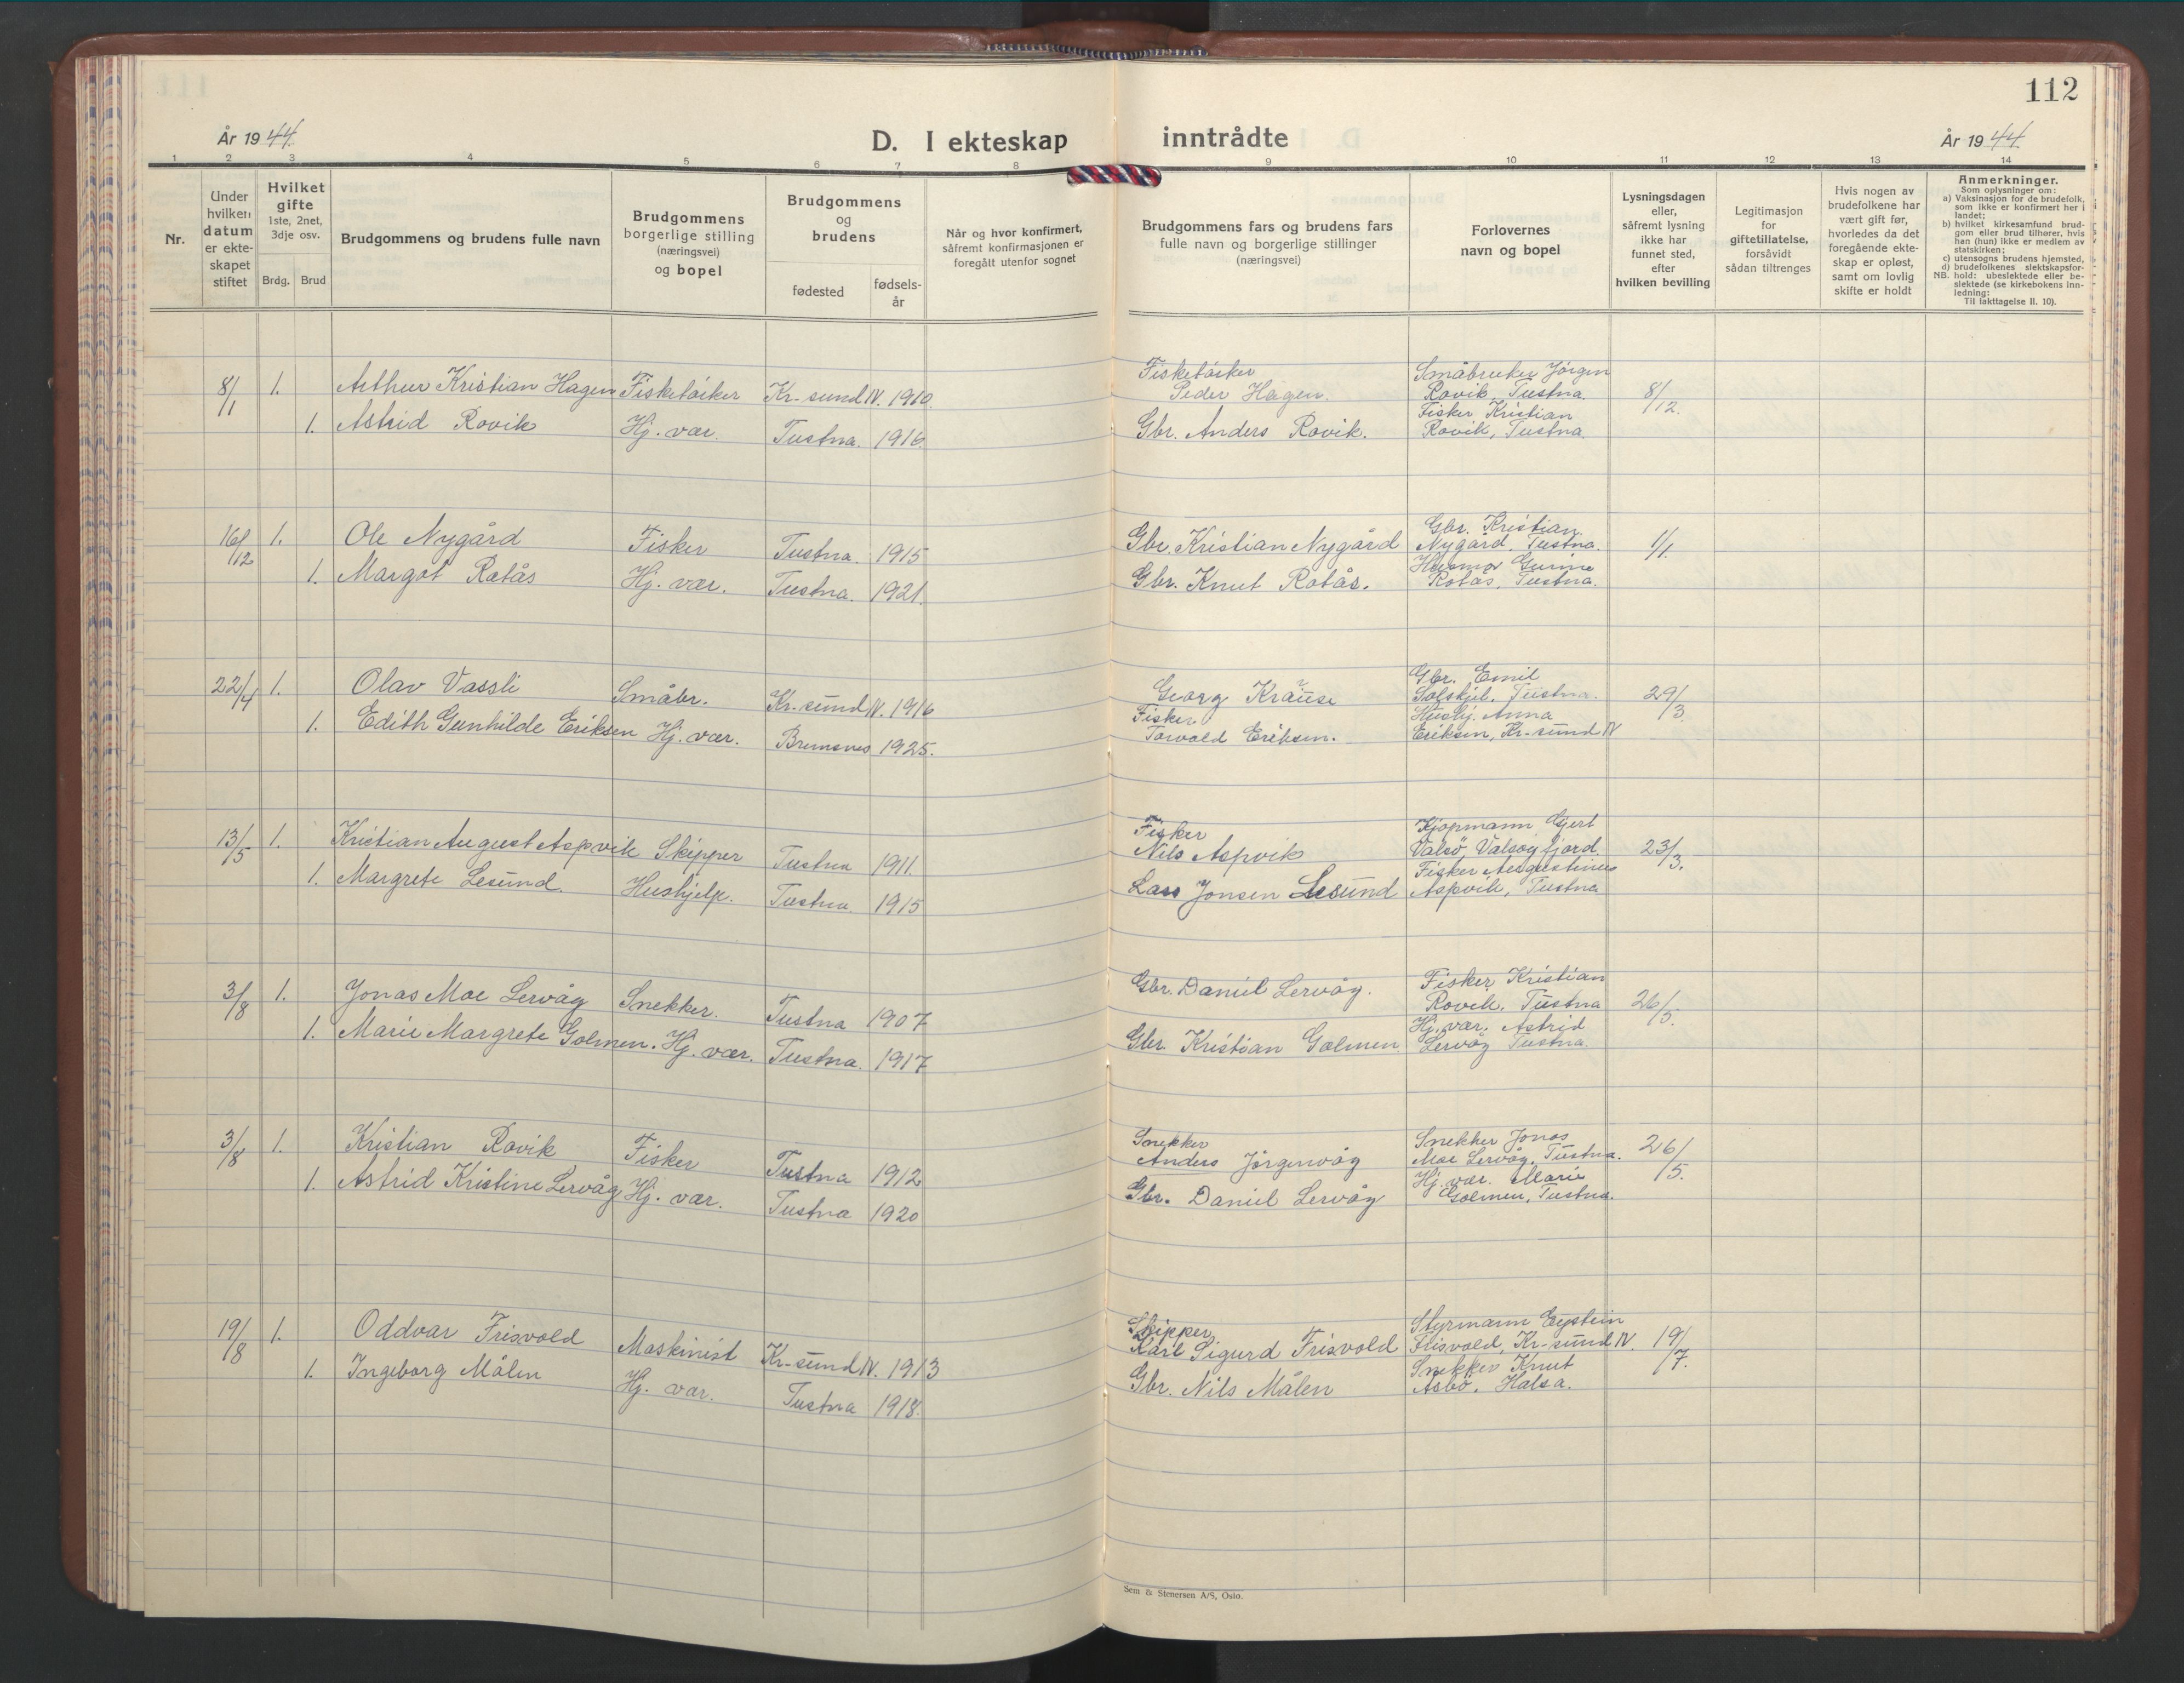 112
År 1944.
D. I ekteskap inntrådte
År 1944.
1 2 3 4 5 6 7 8 9 10 11 12 13 14
Nr.
Under hvilken datum er ekteskapet stiftet
Hvilket gifte 1ste, 2net, 3dje osv.
Brdg. Brud
Brudgommens og brudens fulle navn
Brudgommens borgerlige stilling (næringsvei) og bopel
Brudgommens og brudens
fødested
fødselsår
Når og hvor konfirmert, såfremt konfirmasjonen er foregått utenfor sognet
Brudgommens fars og brudens fars fulle navn og borgerlige stillinger (næringsvei)
Forlovernes navn og bopel
Lysningsdagen eller, såfremt lysning ikke har funnet sted, efter hvilken bevilling
Legitimasjon for giftetillatelse, forsåvidt sådan tiltrenges
Hvis nogen av brudefolkene har vært gift før, hvorledes da det foregående ekteskap er opløst, samt om lovlig skifte er holdt
Anmerkninger.
Som oplysninger om:
a) Vaksinasjon for de brudefolk, som ikke er konfirmert her i landet;
b) hvilket kirkesamfund brudgom eller brud tilhører, hvis han (hun) ikke er medlem av statskirken;
c) utensogns brudens hjemsted,
d) brudefolkenes slektskapsforhold: ubeslektede eller beslektede (se kirkebokens innledning:
NB.
Til iakttagelse II. 10).
8/1 1. Arthur Kristian Hagen Fisketørker Kr-sund N. 1910. Fisketørker Peder Hagen. Småbruker Jørgen Rovik, Tustna. 8/12.
1. Astrid Rovik Hj. vær. Tustna. 1916. Gbr. Anders Rovik. Fisker Kristian Rovik, Tustna.
16/12 1. Ole Nygård Fisker Tustna. 1915 Gbr. Kristian Nygård Gbr. Kristian Nygård, Tustna. 1/1.
1. Margot Rotås Hj. vær. Tustna. 1921. Gbr. Knut Rotås. Husmor Gurine Rotås, Tustna.
22/4 1. Olav Vassli Småbr. Kr-sund N. 1916 Georg Krause Gbr. Emil Solskjel. Tustna. 29/3.
1. Edith Gunhilde Eriksen Hj. vær. Bremsnes 1925. Fisker Torvald Eriksen. Hushj. Anna Eriksen, Kr-sund N
13/5 1. Kristian August Aspvik Skipper Tustna 1911. Fisker Nils Aspvik Kjøpmann Gjert Valsø, Valsøyfjord. 23/3.
1. Margrete Lesund. Hushjelp. Tustna. 1915 Lars Jonsen Lesund Fisker Augustinus Aspvik, Tustna
3/8 1. Jonas Moe Lervåg Snekker. Tustna 1907 Gbr. Daniel Lervåg. Fisker Kristian Rovik, Tustna 26/5.
1. Marie Margrete Golmen. Hj. vær. Tustna. 1917 Gbr. Kristian Golmen Hj. vær. Astrid Lervåg Tustna.
3/8 1. Kristian Rovik Fisker Tustna 1912 Snekker Anders Jørgenvåg Snekker Jonas Moe Lervåg, Tustna. 26/5.
1. Astrid Kristine Lervåg Hj. vær. Tustna 1920 Gbr. Daniel Lervåg Hj. vær. Marie Golmen, Tustna.
19/8 1. Oddvar Frisvold Maskinist Kr-sund N. 1913 Skipper Karl Sigurd Frisvold Styrmann Eystein Frisvold, Kr-sund N. 19/7.
1. Ingeborg Målen Hj. vær. Tustna 1918. Gbr. Nils Målen Snekker Knut Åsbø, Halsa.
Sem & Stenersen A/S, Oslo.